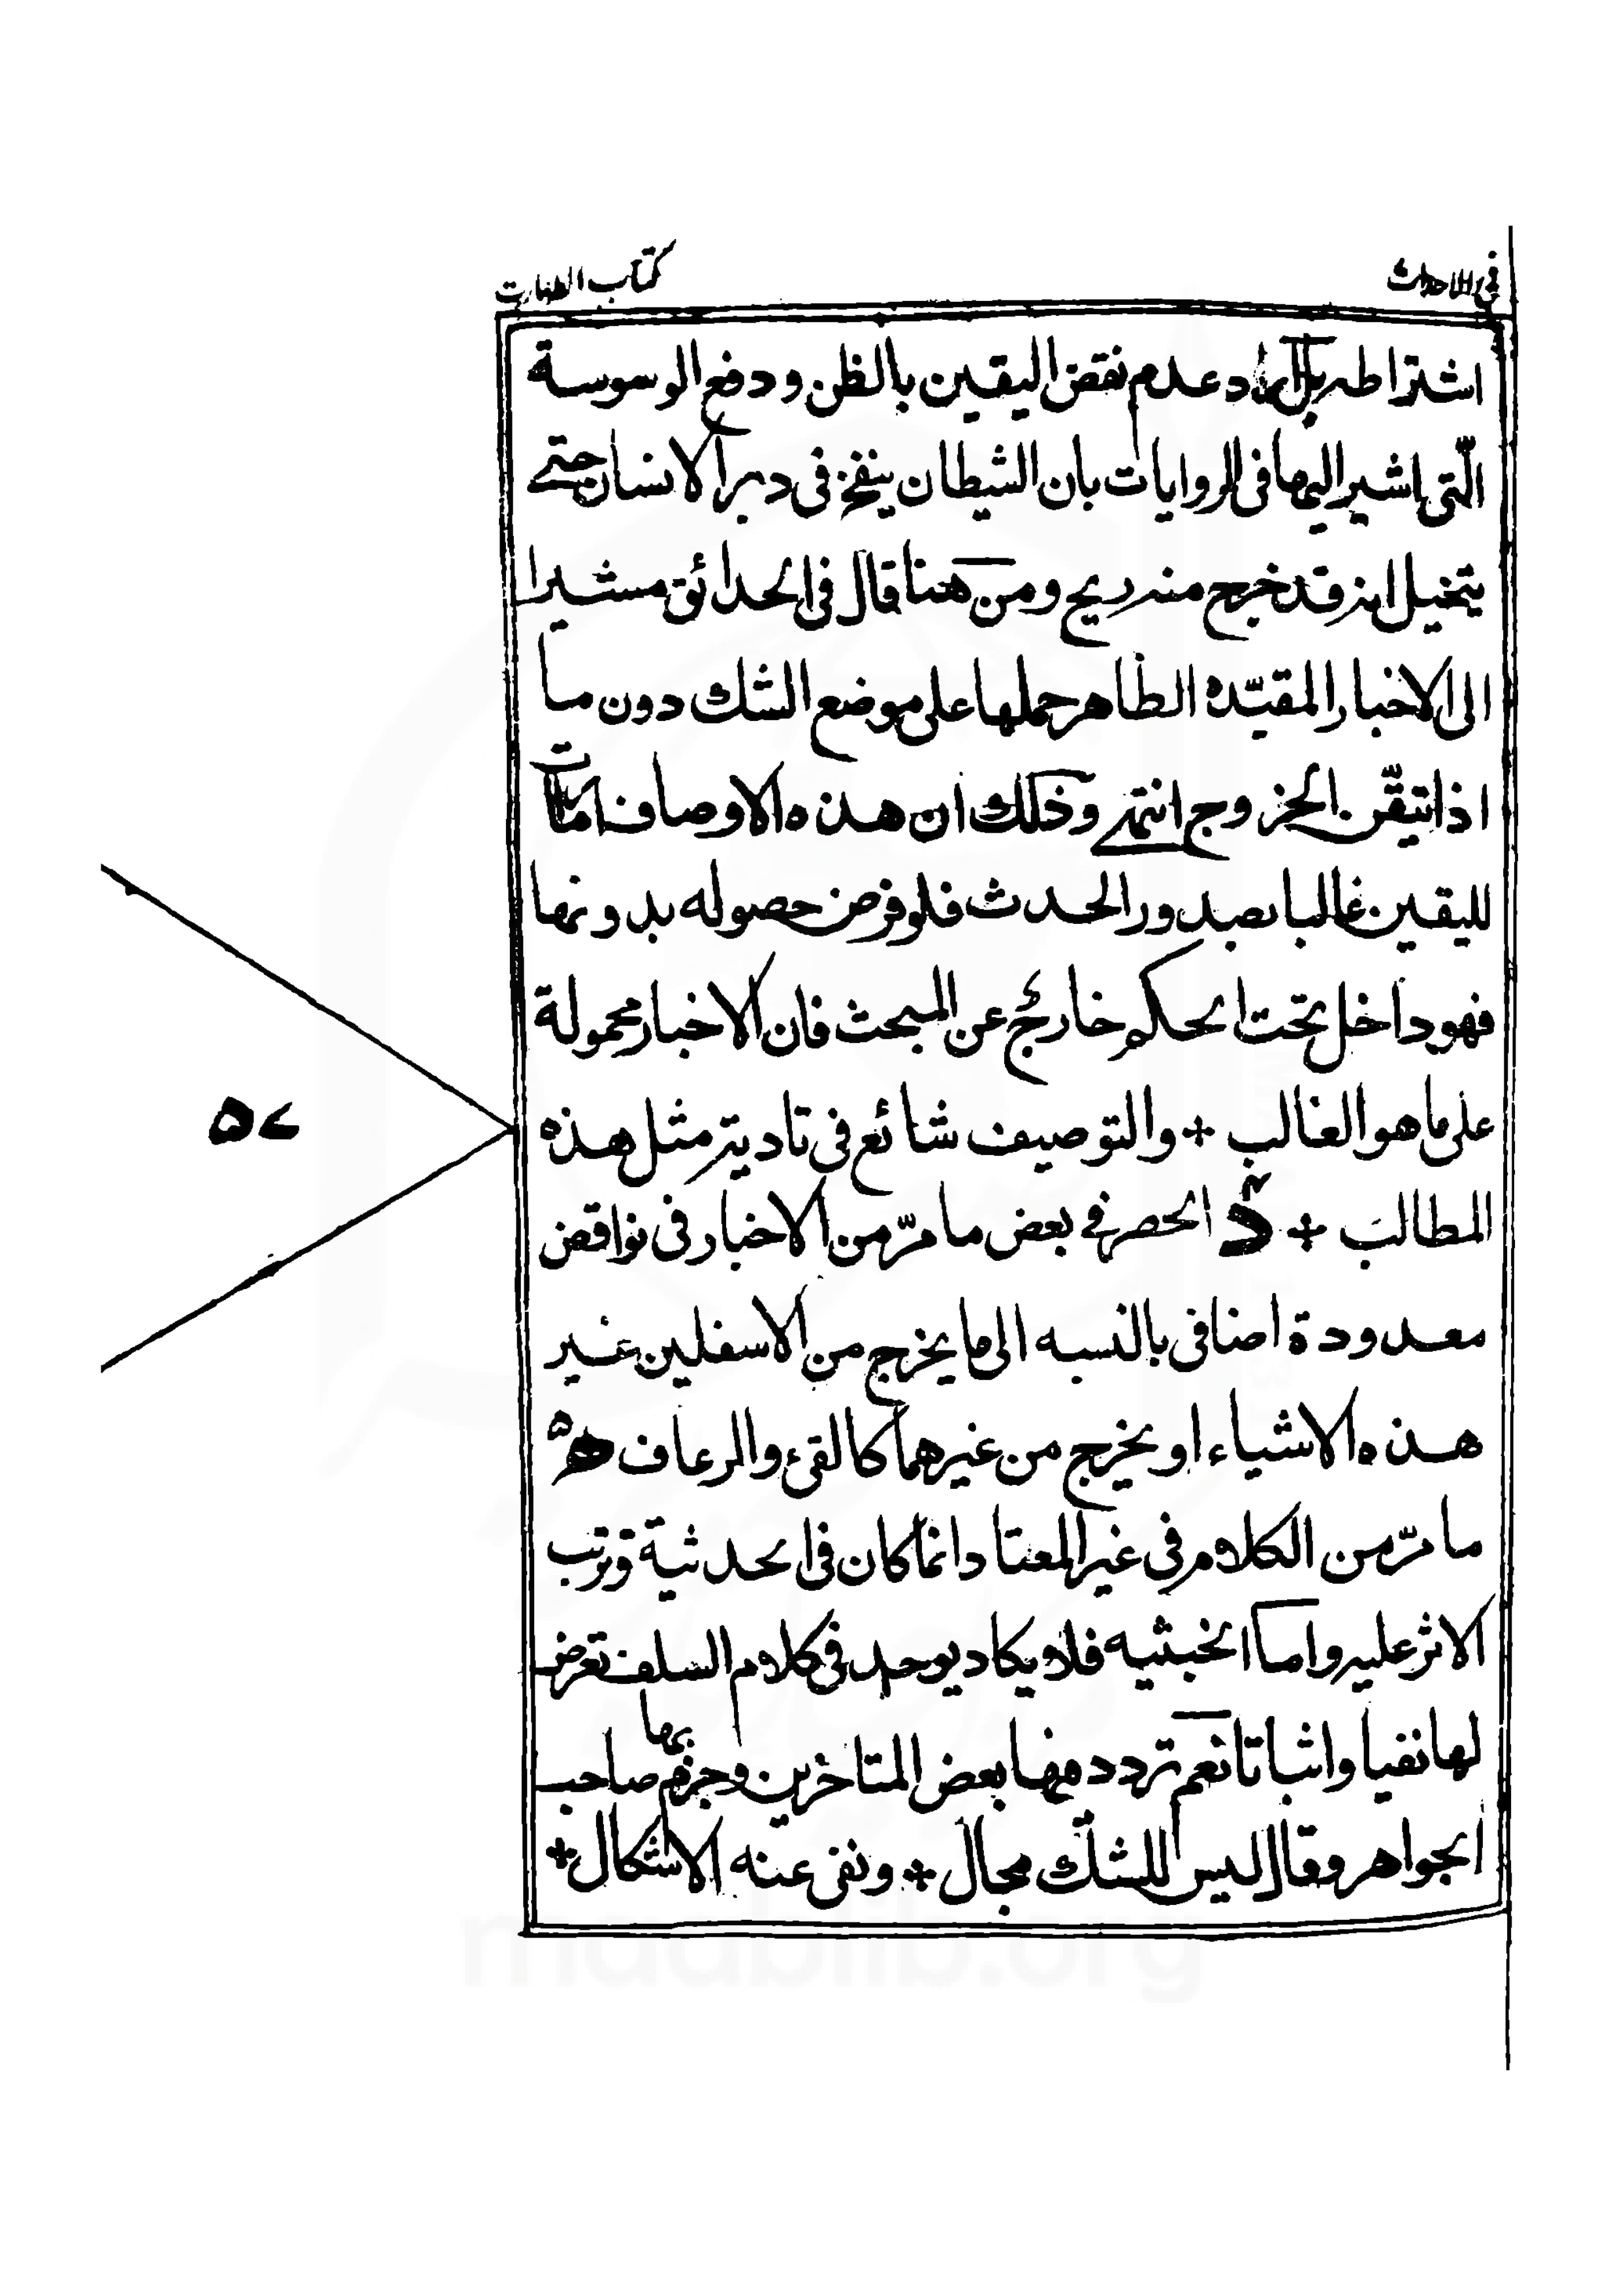 في الاحداث
كتاب الطهارت
اشتراطه بل المراد عدم نقض اليقين بالظن ودفع الوسوسة
الّتى اشير اليها فى الروايات بان الشيطان ينفخ فى دبر الانسان حتى
يتخيل انه قد خرج منه ريح ومن هنا قال فى الحدائق مشيرا
الى الاخبار المقيّده الظاهر حملها على موضع الشك دون ما
اذا تيقّن الخروج انتهى وذلك ان هذه الاوصاف امارات
لليقين غالبا بصدور الحدث فلو فرض حصوله بدونها
فهو داخل تحت الحكم خارج عن المبحث فان الاخبار محمولة
على ما هو الغالب + والتوصيف شائع فى تادية مثل هذه
المطالب + د الحصر فى بعض ما مرّ من الاخبار فى نواقض
معدودة اضافى بالنسبه الى ما يخرج من الاسفلين غير
هذه الاشياء او يخرج من غيرهما كالقىء والرعاف ه
ما مرّ من الكلام فى غير المعتاد انما كان فى الحدثية وترتب
الاثر عليه واما الخبثيه فلا يكاد يوجد فى كلام السلف تعرض
لها نفيا واثباتا نعم تردد فيها بعض المتاخرين وجزم بها صاحب
الجواهر وقال ليس للشك مجال + ونفى عنه الاشكال +
۵۷
madblib.org